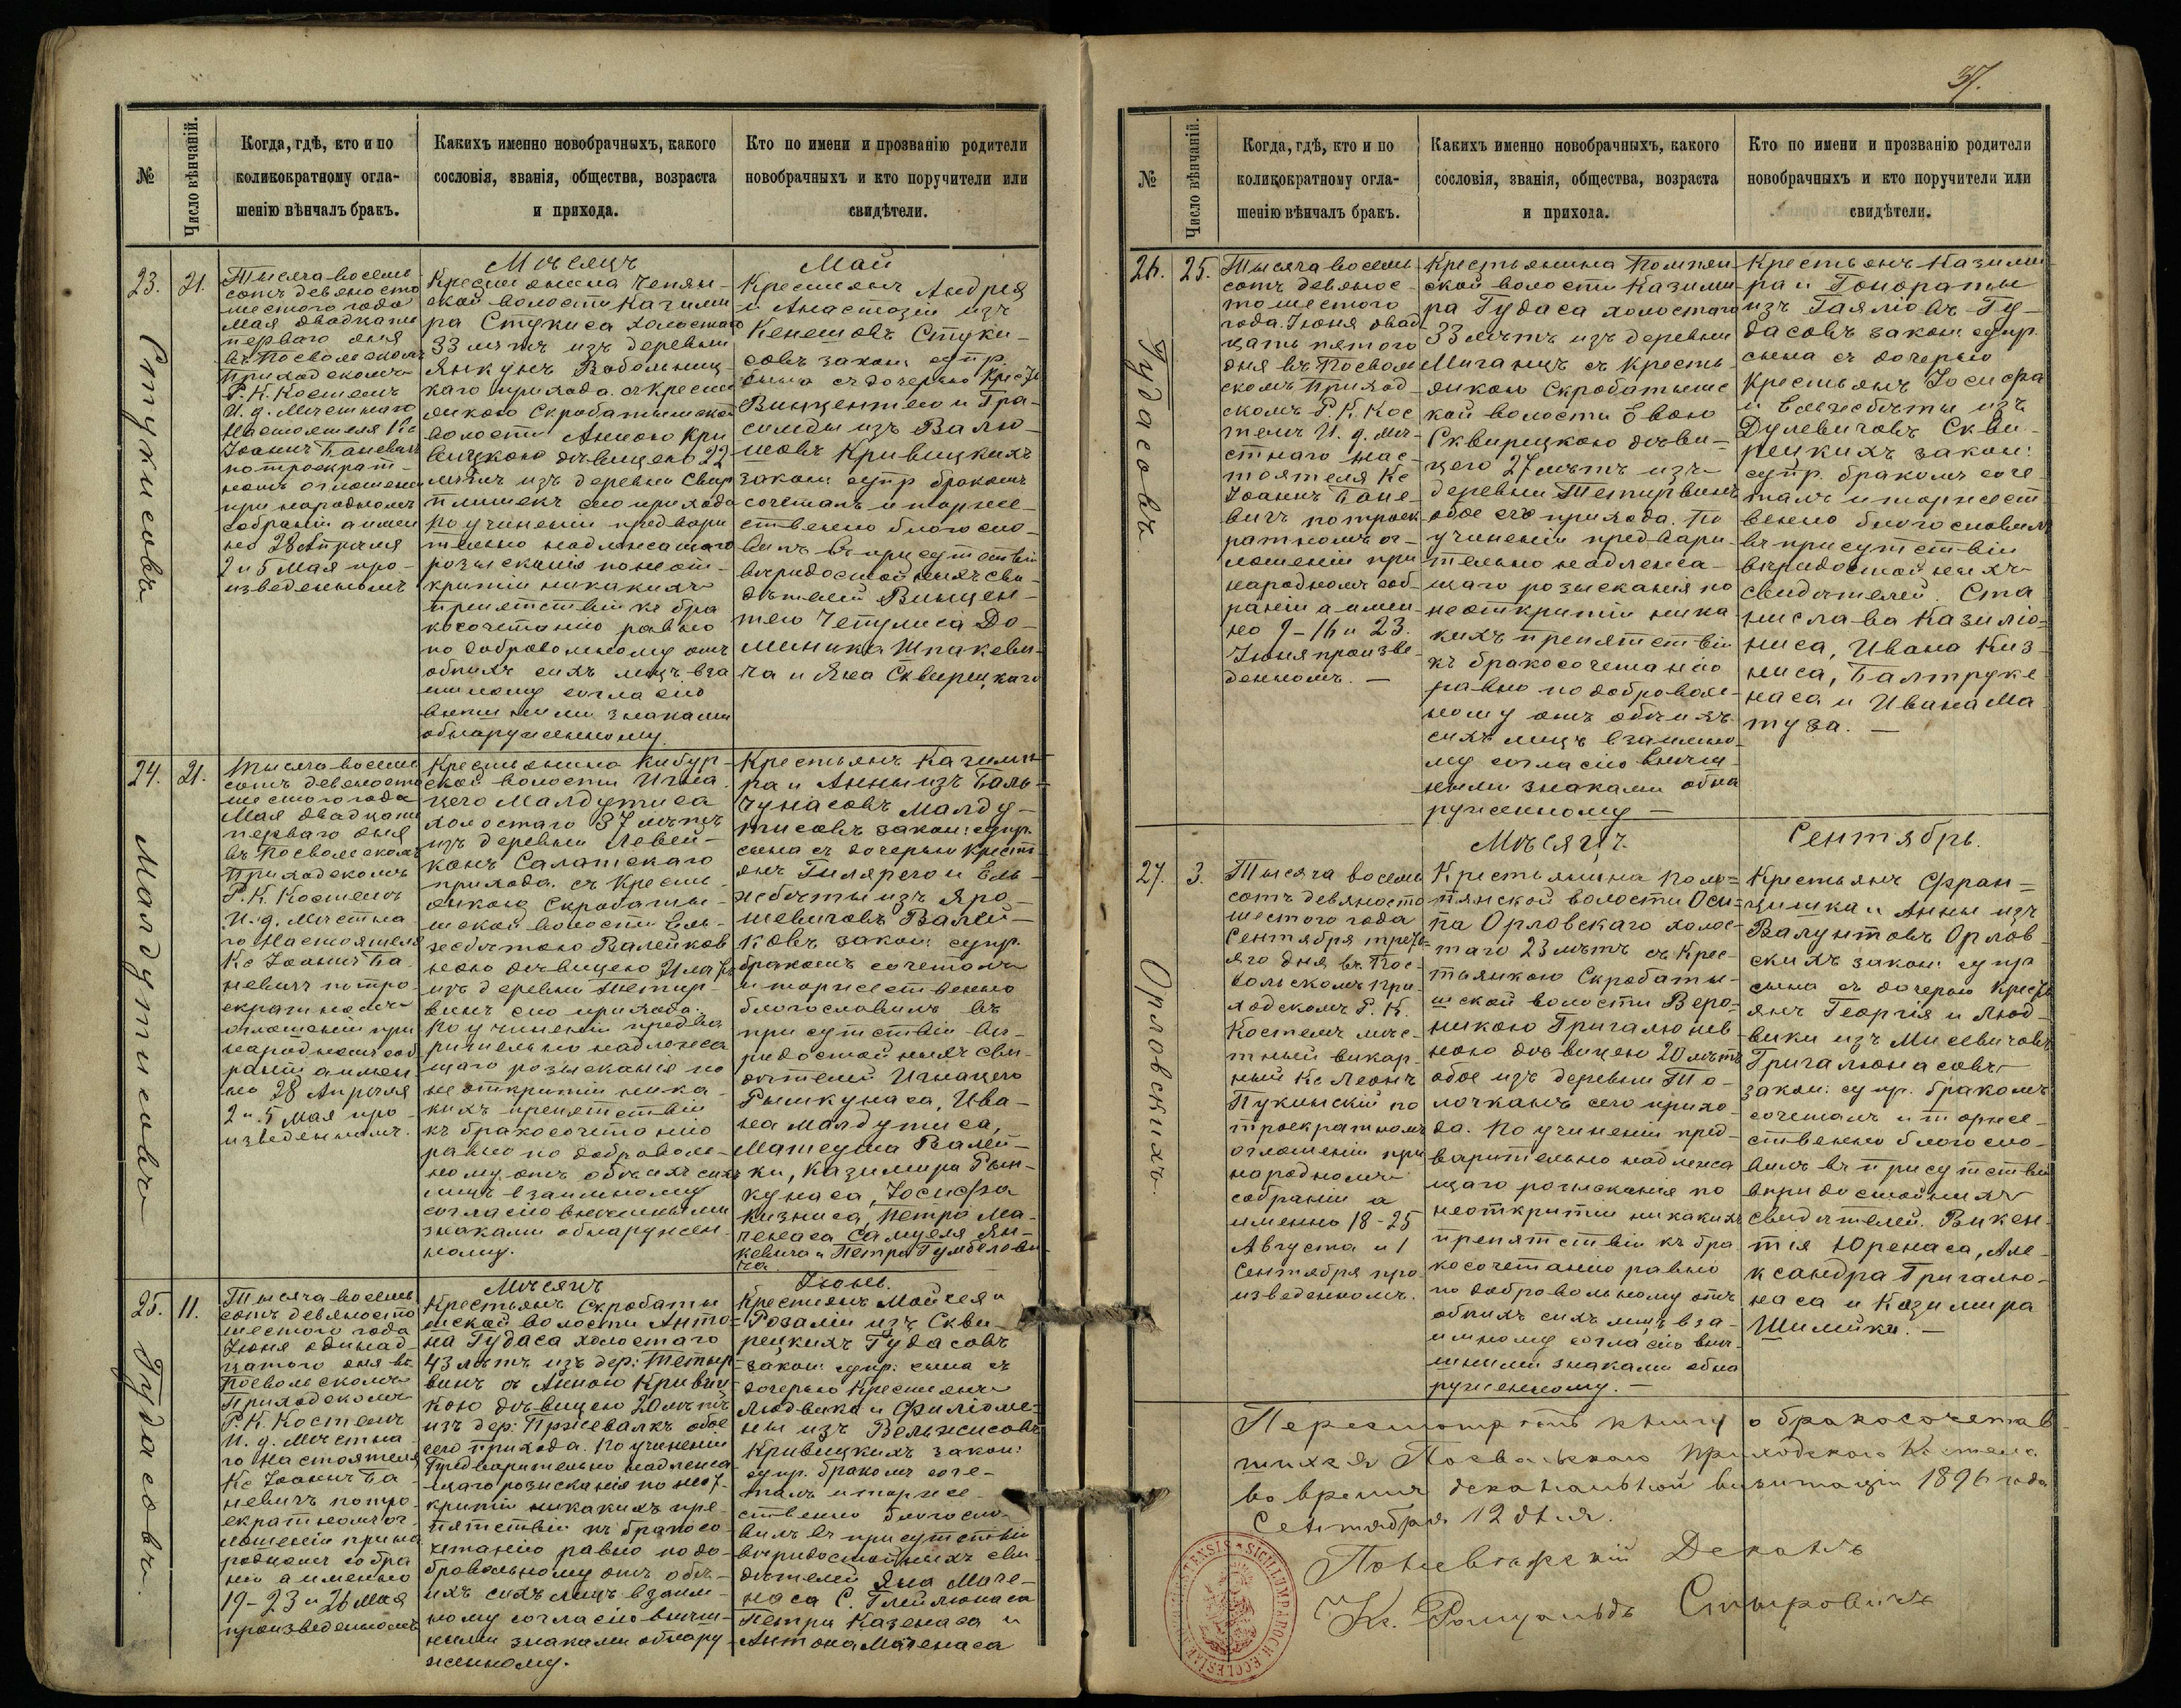 №
Число вѣнчаній.
Когда, гдѣ, кто и по
коликократному огла-
шенію вѣнчалъ бракъ.
Какихъ именно новобрачныхъ, какого
сословія, званія, общества, возраста
и прихода.
Кто по имени и прозванію родители
новобрачныхъ и кто поручители или
свидѣтели.
Мѣсяцъ Май
23.
Стукисовъ
21.
Тысяча восемь
сотъ девяносто
шестого года
Мая двадцать
перваго дня
въ Посвольскомъ
Приходскомъ
Р. К. Костелѣ
И. д. Мѣстнаго
Настоятеля Кс
Іоаннъ Баневичъ
по троекрат-
номъ оглашеніи
при народномъ
собраніи а имен
но 28 Апрѣля
2 и 5 Мая про-
изведенномъ
Крестьянина Чепян-
ской волости Казими
ра Стукиса холостаго
33 лѣтъ изъ деревни
Янкунъ Вобольниц-
каго прихода съ Кресть
янкою Скробатышской
волости Анною Кри
вицкою дѣвицею 22
лѣтъ изъ деревни Свир
плишекъ сего прихода
По учиненіи предвари
тельно надлежащаго
розысканія по неот-
крытіи никакихъ
препятствій къ бра
косочетанію равно
по добровольному отъ
обоихъ сихъ лицъ вза
имному согласію
внѣшними знаками
обнаруженному
Крестьянъ Андрея
и Анастазіи изъ
Кенешовъ Стуки-
совъ закон. супр.
сына съ дочерью Крест
Винцентего и Гра-
сильды изъ Валю-
шовъ Кривицкихъ
закон. супр бракомъ
сочеталъ и торже-
ственно благосло-
вилъ въ присутствіи
вѣридостойныхъ сви-
дѣтелей Винцен-
тего Четулиса До-
миника Шпакеви-
ча и Яна Сквирецкаго
24.
Малдутисовъ
21.
Тысяча восемь
сотъ девяносто
шестого года
Мая двадцать
перваго дня
въ Посвольскомъ
Приходскомъ
Р. К. Костелѣ
И. д. Мѣстна
го Настоятеля
Кс Іоаннъ Ба
невичъ по тро
екратномъ
оглашеніи при
народномъ соб
раніи а имен
но 28 Апрѣля
2 и 5 Мая про-
изведенномъ.
Крестьянина Кибур-
ской волости Игна
цего Малдутиса
холостаго 37 лѣтъ
изъ деревни Левей-
конъ Салатскаго
прихода. съ Кресть
янкою Скробаты-
шской волости Ель-
жебѣтою Валейков
ною дѣвицею 21 лѣтъ
изъ деревни Тетир-
винъ сего прихода.
По учиненіи предва
рительно надлежа
щаго розысканія по
неоткрытіи ника-
кихъ препятствій
къ бракосочетанію
равно по доброволь-
ному отъ обоихъ сихъ
лицъ взаимному
согласію внѣшними
знаками обнаружен-
ному.
Крестьянъ Казими-
ра и Анны изъ Баль-
чунасовъ Малду-
тисовъ закон: супр.
сына съ дочерью Крест
янъ Гилярего и Ель
жебѣты изъ Яро-
шевичовъ Валей-
ковъ закон: супр.
бракомъ сочеталъ
и торжественно
благословилъ въ
присутствіи вѣ-
ридостойныхъ сви-
дѣтелей Игнацего
Рымкунаса, Ива-
на Малдутиса,
Матеуша Валей-
ки, Казимира Рым-
кунаса, Іосифа
Кизниса, Петра Ма-
ченаса Самуеля Ян-
кевича и Петра Гумбелеви-
ча
Мѣсяцъ Іюнь.
25.
Гудасовъ.
11.
Тысяча восемь
сотъ девяносто
шестого года
Іюня одинад-
цатого дня въ
Посвольскомъ
Приходскомъ
Р. К. Костелѣ
И. д. Мѣстна
го Настоятеля
Кс Іоаннъ Ба
невичъ по тро-
екратномъ ог
лашеніи при на
родномъ собра
ніи а именно
19-23 и 26 Мая
произведенномъ
Крестьянъ Скробаты
шской волости Анто-
на Гудаса холостаго
43 лѣтъ изъ дер: Тетир
винъ съ Анною Кривиц
кою дѣвицею 20 лѣтъ
изъ дер: Пржевалкъ обое
сего прихода. По учиненіи
Предварительно надлежа
щаго розысканія по неот-
крытіи никакихъ пре
пятствій къ бракосо
четанію равно по до-
бровольному отъ обо-
ихъ сихъ лицъ взаим-
ному согласію внѣш-
ними знаками обнару
женному.
Крестьянъ Мойжея и
Розаліи изъ Скви-
рецкихъ Гудасовъ
закон: супр: сына съ
дочерью Крестьянъ
Людвика и Филиоме-
ны изъ Вельжисовъ
Кривицкихъ закон:
супр. бракомъ соче-
талъ и торже-
ственно благосло
вилъ въ присутствіи
вѣридостойныхъ сви-
дѣтелей Яна Маче-
наса С. Глейлюнаса
Петра Казенаса и
Антона Маченаса
37.
№
Число вѣнчаній.
Когда, гдѣ, кто и по
коликократному огла-
шенію вѣнчалъ бракъ.
Какихъ именно новобрачныхъ, какого
сословія, званія, общества, возраста
и прихода.
Кто по имени и прозванію родители
новобрачныхъ и кто поручители или
свидѣтели.
26.
Гудасовъ.
25.
Тысяча восемь
сотъ девянос-
то шестого
года. Іюня двад
цать пятого
дня въ Посволь
скомъ Приход
скомъ Р. К. Кос
телѣ И. д. Мѣ-
стнаго Нас-
тоятеля Кс
Іоаннъ Бане-
вичъ по троек
ратномъ ог-
лашеніи при
народномъ соб
раніи а имен-
но 9-16 и 23.
Іюня произве-
денномъ. —
Крестьянина Помпян-
ской волости Казими
ра Гудаса холостаго
33 лѣтъ изъ деревни
Миганцъ съ Кресть-
янкою Скробатышс
кой волости Евою
Сквирецкою дѣви-
цею 27 лѣтъ изъ
деревни Тетирвинъ
обое сего прихода. По
учиненіи предвари-
тельно надлежа-
щаго розысканія по
неоткрытіи ника
кихъ препятствій
къ бракосочетанію
равно по доброволь-
ному отъ обоихъ
сихъ лицъ взаимно-
му согласію внѣш-
ними знаками обна
руженному —
Крестьянъ Казими
ра и Гонораты
изъ Гаялювъ Гу-
дасовъ закон: супр.
сына съ дочерью
Крестьянъ Іосифа
и Ельжебѣты изъ
Дулевичовъ Скви-
рецкихъ закон:
супр. бракомъ соче
талъ и торжест
венно благословилъ
въ присутствіи
вѣридостойныхъ
свидѣтелей. Ста
нислава Казилю-
ниса, Ивана Киз-
ниса, Балтруке
наса и Ивана Ма
туза. —
Мѣсяцъ. Сентябрь.
27.
Орловскихъ.
3.
Тысяча восемь
сотъ девяносто
шестого года
Сентября треть-
яго дня въ Пос-
вольскомъ При-
ходскомъ Р. К.
Костелѣ мѣс-
тный викар-
ный Кс Леонъ
Пукинскій по
троекратномъ
оглашеніи при
народномъ
собраніи а
именно 18-25
Августа и 1
Сентября про-
изведенномъ.
Крестьянина Поло-
пянской волости Оси-
па Орловскаго холос-
таго 23 лѣтъ съ Крес-
тьянкою Скробаты-
шской волости Веро-
никою Григалюнев
ною дѣвицею 20 лѣтъ
обое изъ деревни То-
лочканъ сего прихо-
да. По учиненіи пред-
варительно надлежа
щаго розысканія по
неоткрытіи никакихъ
препятствій къ бра
косочетанію равно
по добровольному отъ
обоихъ сихъ лицъ вза-
имному согласію внѣ-
шними знаками обна
руженному. —
Крестьянъ Фран-
цишка и Анны изъ
Валунтовъ Орлов-
скихъ закон: супр
сына съ дочерью Крест
янъ Георгія и Люд-
вики изъ Мисевичовъ
Григалюнасовъ
закон: супр. бракомъ
сочеталъ и торже-
ственно благосло-
вилъ въ присутствіи
вѣридостойныхъ
свидѣтелей. Викен-
тія Юренаса, Але-
ксандра Григалю-
наса и Казимира
Шимейки. —
Пересмотрѣлъ книгу о бракосочетав-
шихся Посвольскаго Приходскаго Костела
во время деканальной визитаціи 1896 года
Сентября 12 дня.
Поневѣжскій Деканъ
Кс. Ромуальдъ